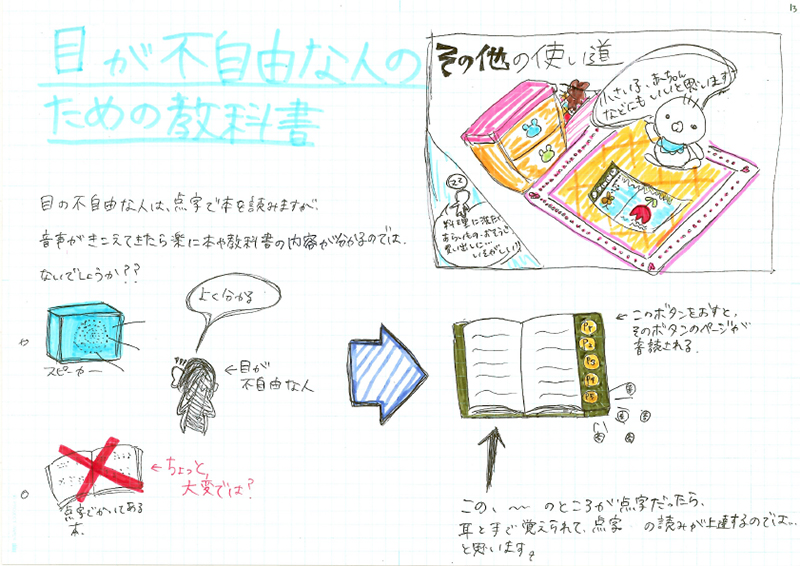 13
目が不自由な人の
ための教科書
その他の使い道
小さい子、あーちゃん
などにもいいと思います
ママ
料理に洗たく
あらいもの・おそうじ
買い出しに…
いそがしい!!
目の不自由な人は、点字で本を読みますが、
音声がきこえてきたら楽に本や教科書の内容が分かるのでは、
ないでしょうか??
よく分かる
スピーカー
←目が
不自由な人
←このボタンをおすと、
そのボタンのページが
音読される。
P1
P2
P3
P4
P5
←ちょっと、
大変では?
点字でかいてある
本。
この、〜〜のところが点字だったら、
耳と手で覚えられて、点字 の読みが上達するのでは…
と思います。